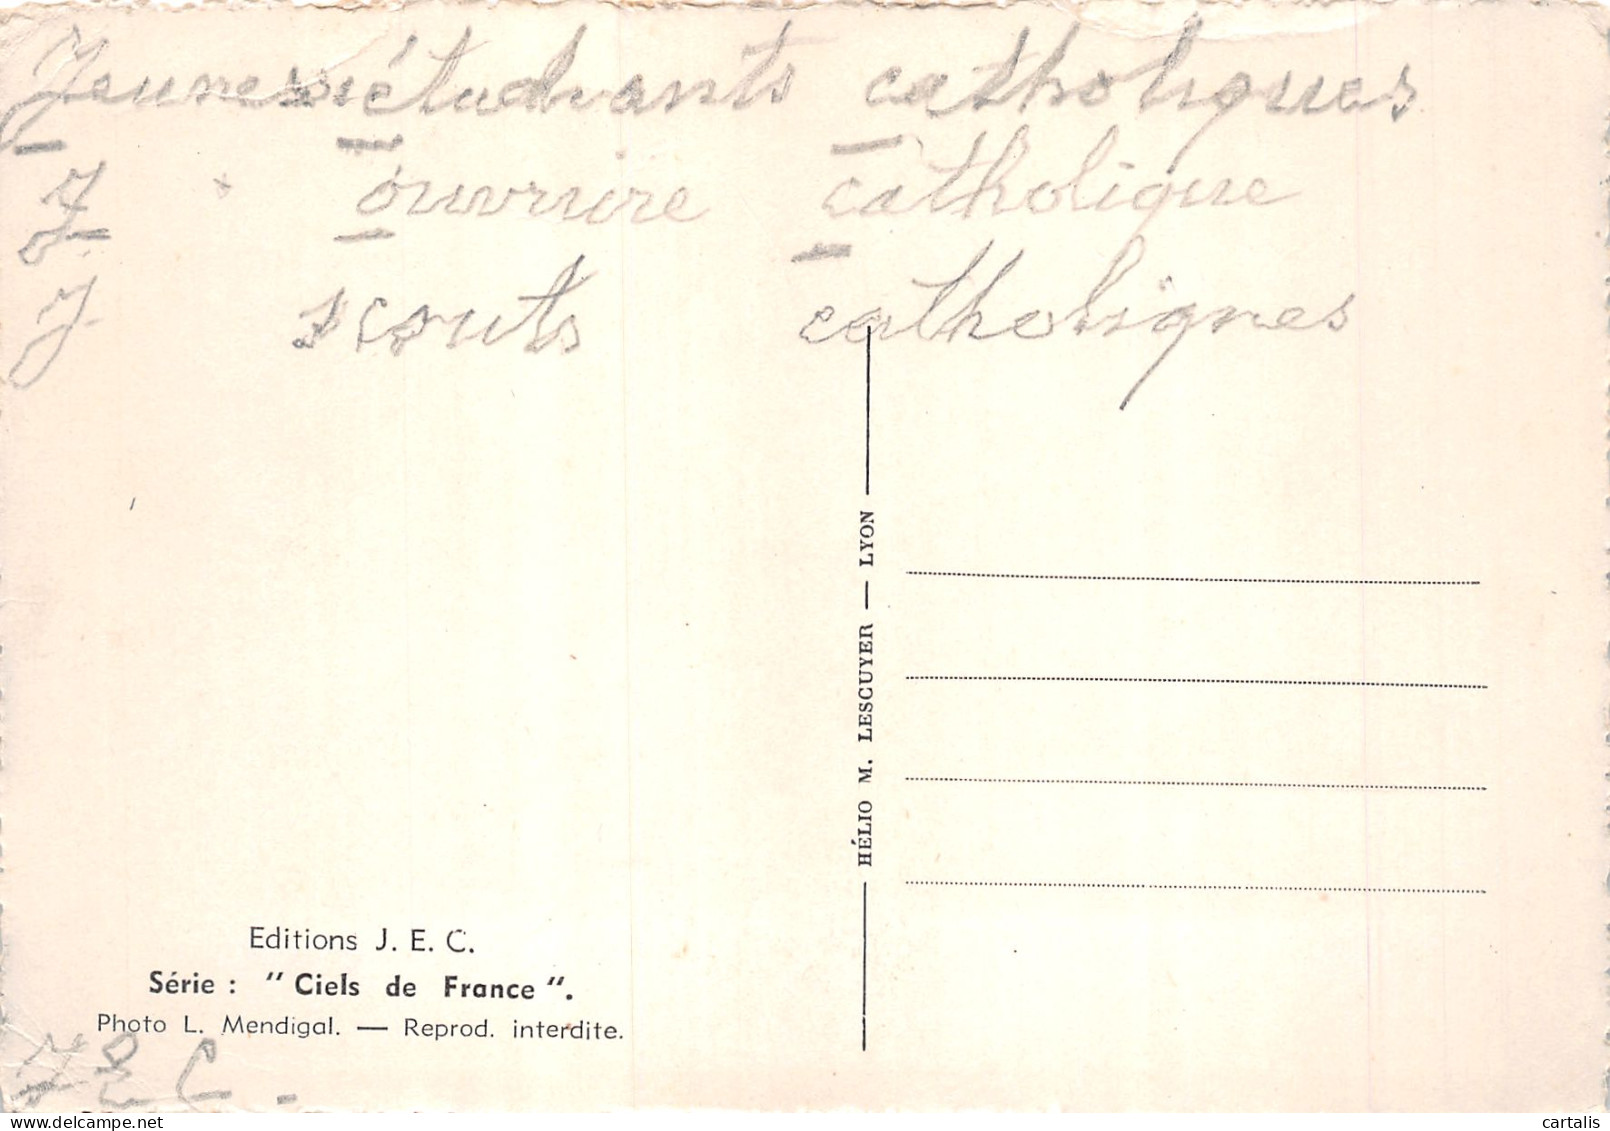 Jeunes étudiants catholiques
J " ouvriire catholique
J scouts catholiques
HÉLIO M. LESCUYER — LYON
Editions J. E. C.
Série : " Ciels de France ".
Photo L. Mendigal. — Reprod. interdite.
J E C -
cartalis